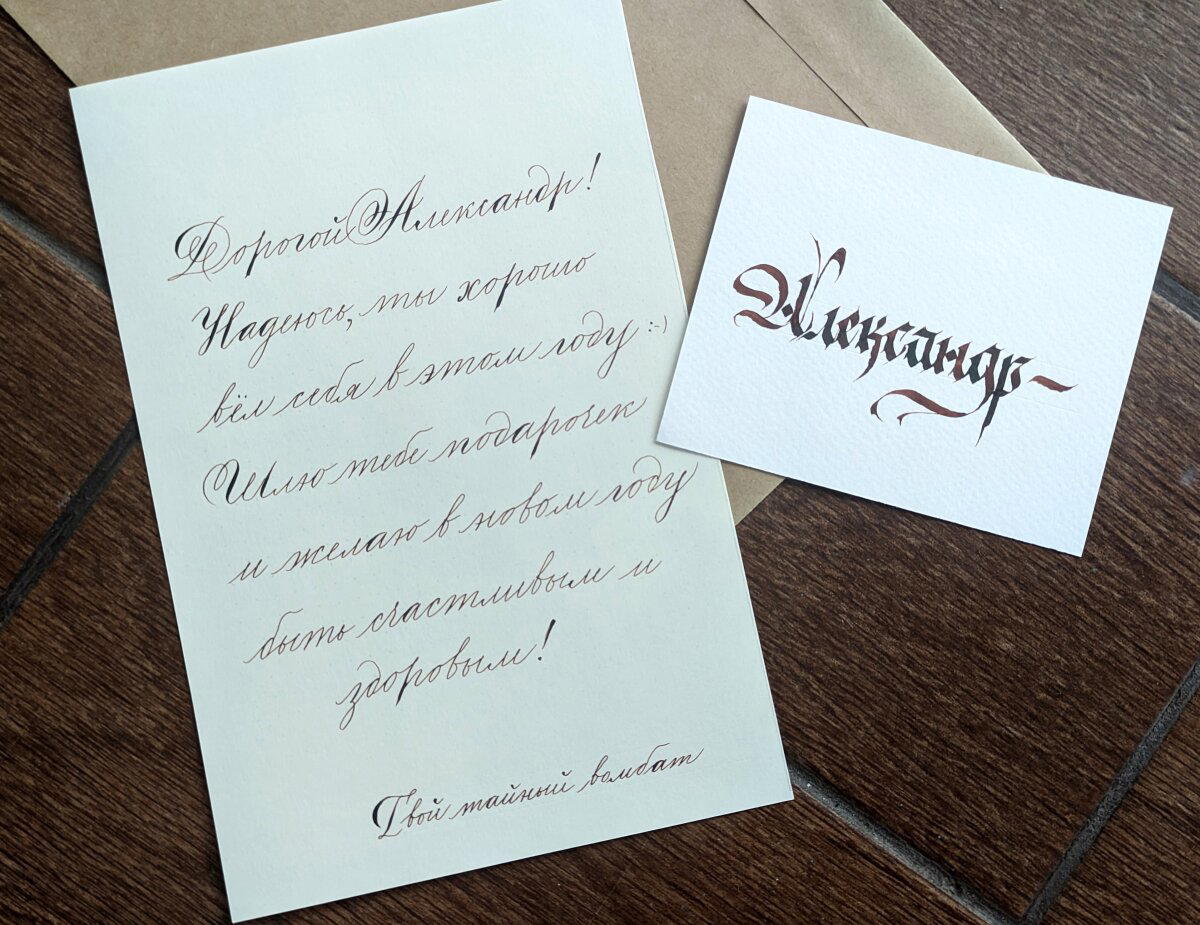 Дорогой Александр!
Надеюсь, ты хорошо
вёл себя в этом году :-)
Шлю тебе подарочек
и желаю в новом году
быть счастливым и
здоровым!
Твой тайный вомбат
Александр